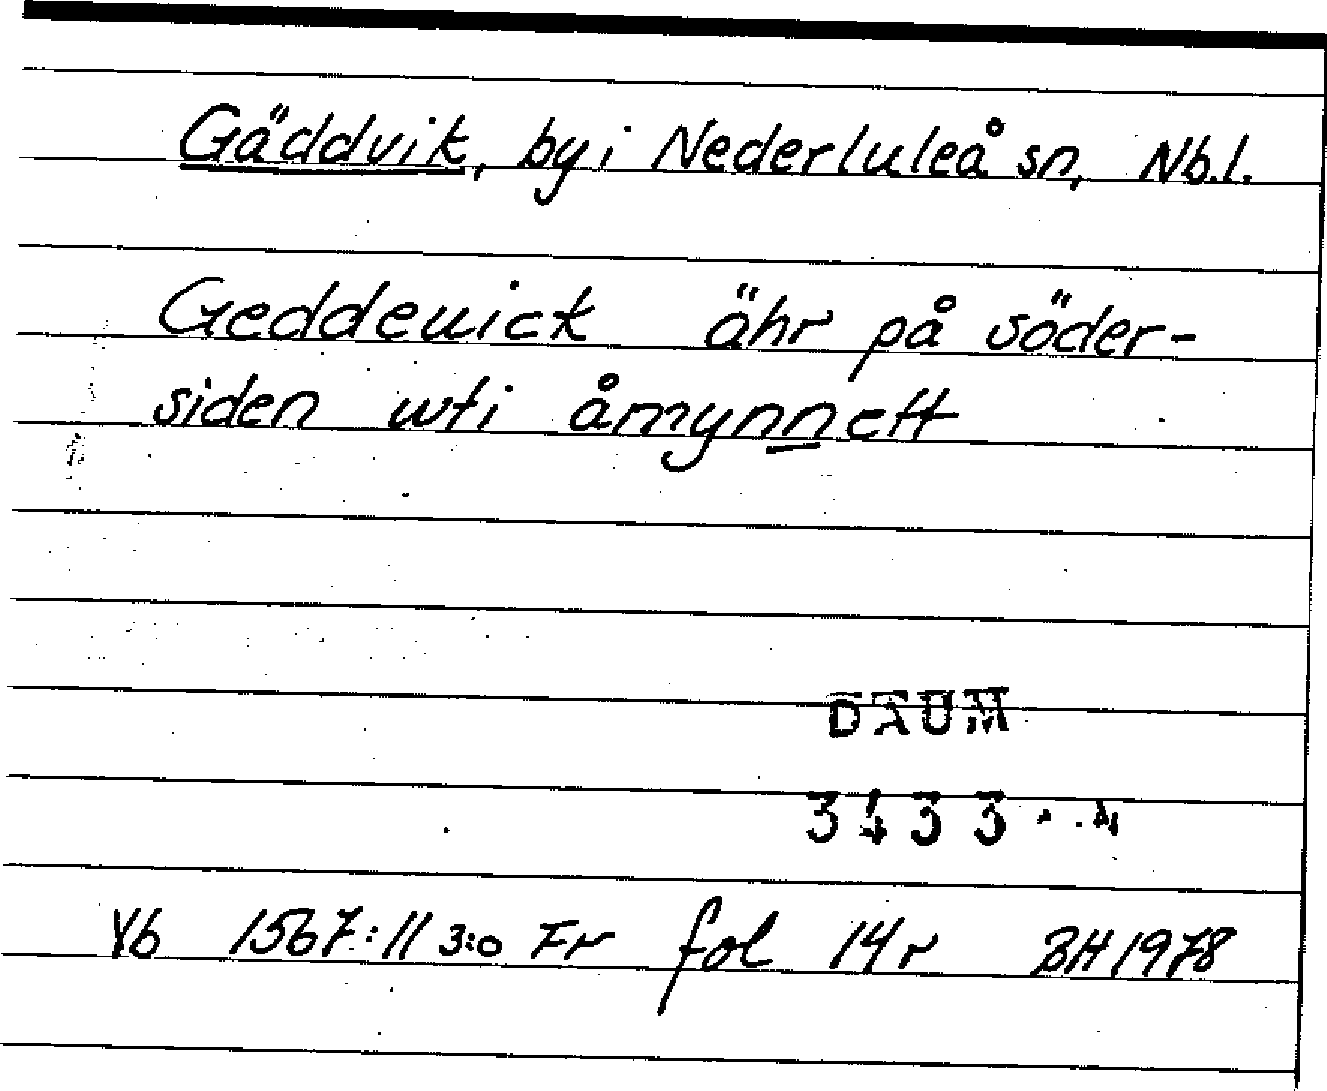 Gäddvik, by i Nederluleå sn, Nb.l.
Geddewick ähr på söder-
siden wti åmynnett
DAUM
3433
Vb 1567:11 3:o Fr fol 14r BH 1978